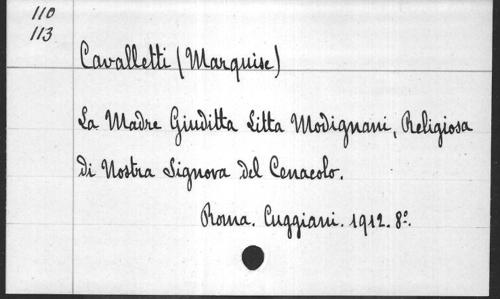 110
113
Cavalletti (Marquise)
La Madre Giuditta Litta Modignani, Religiosa
di Nostra Signora del Cenacolo.
Roma. Cuggiani. 1912. 8º.